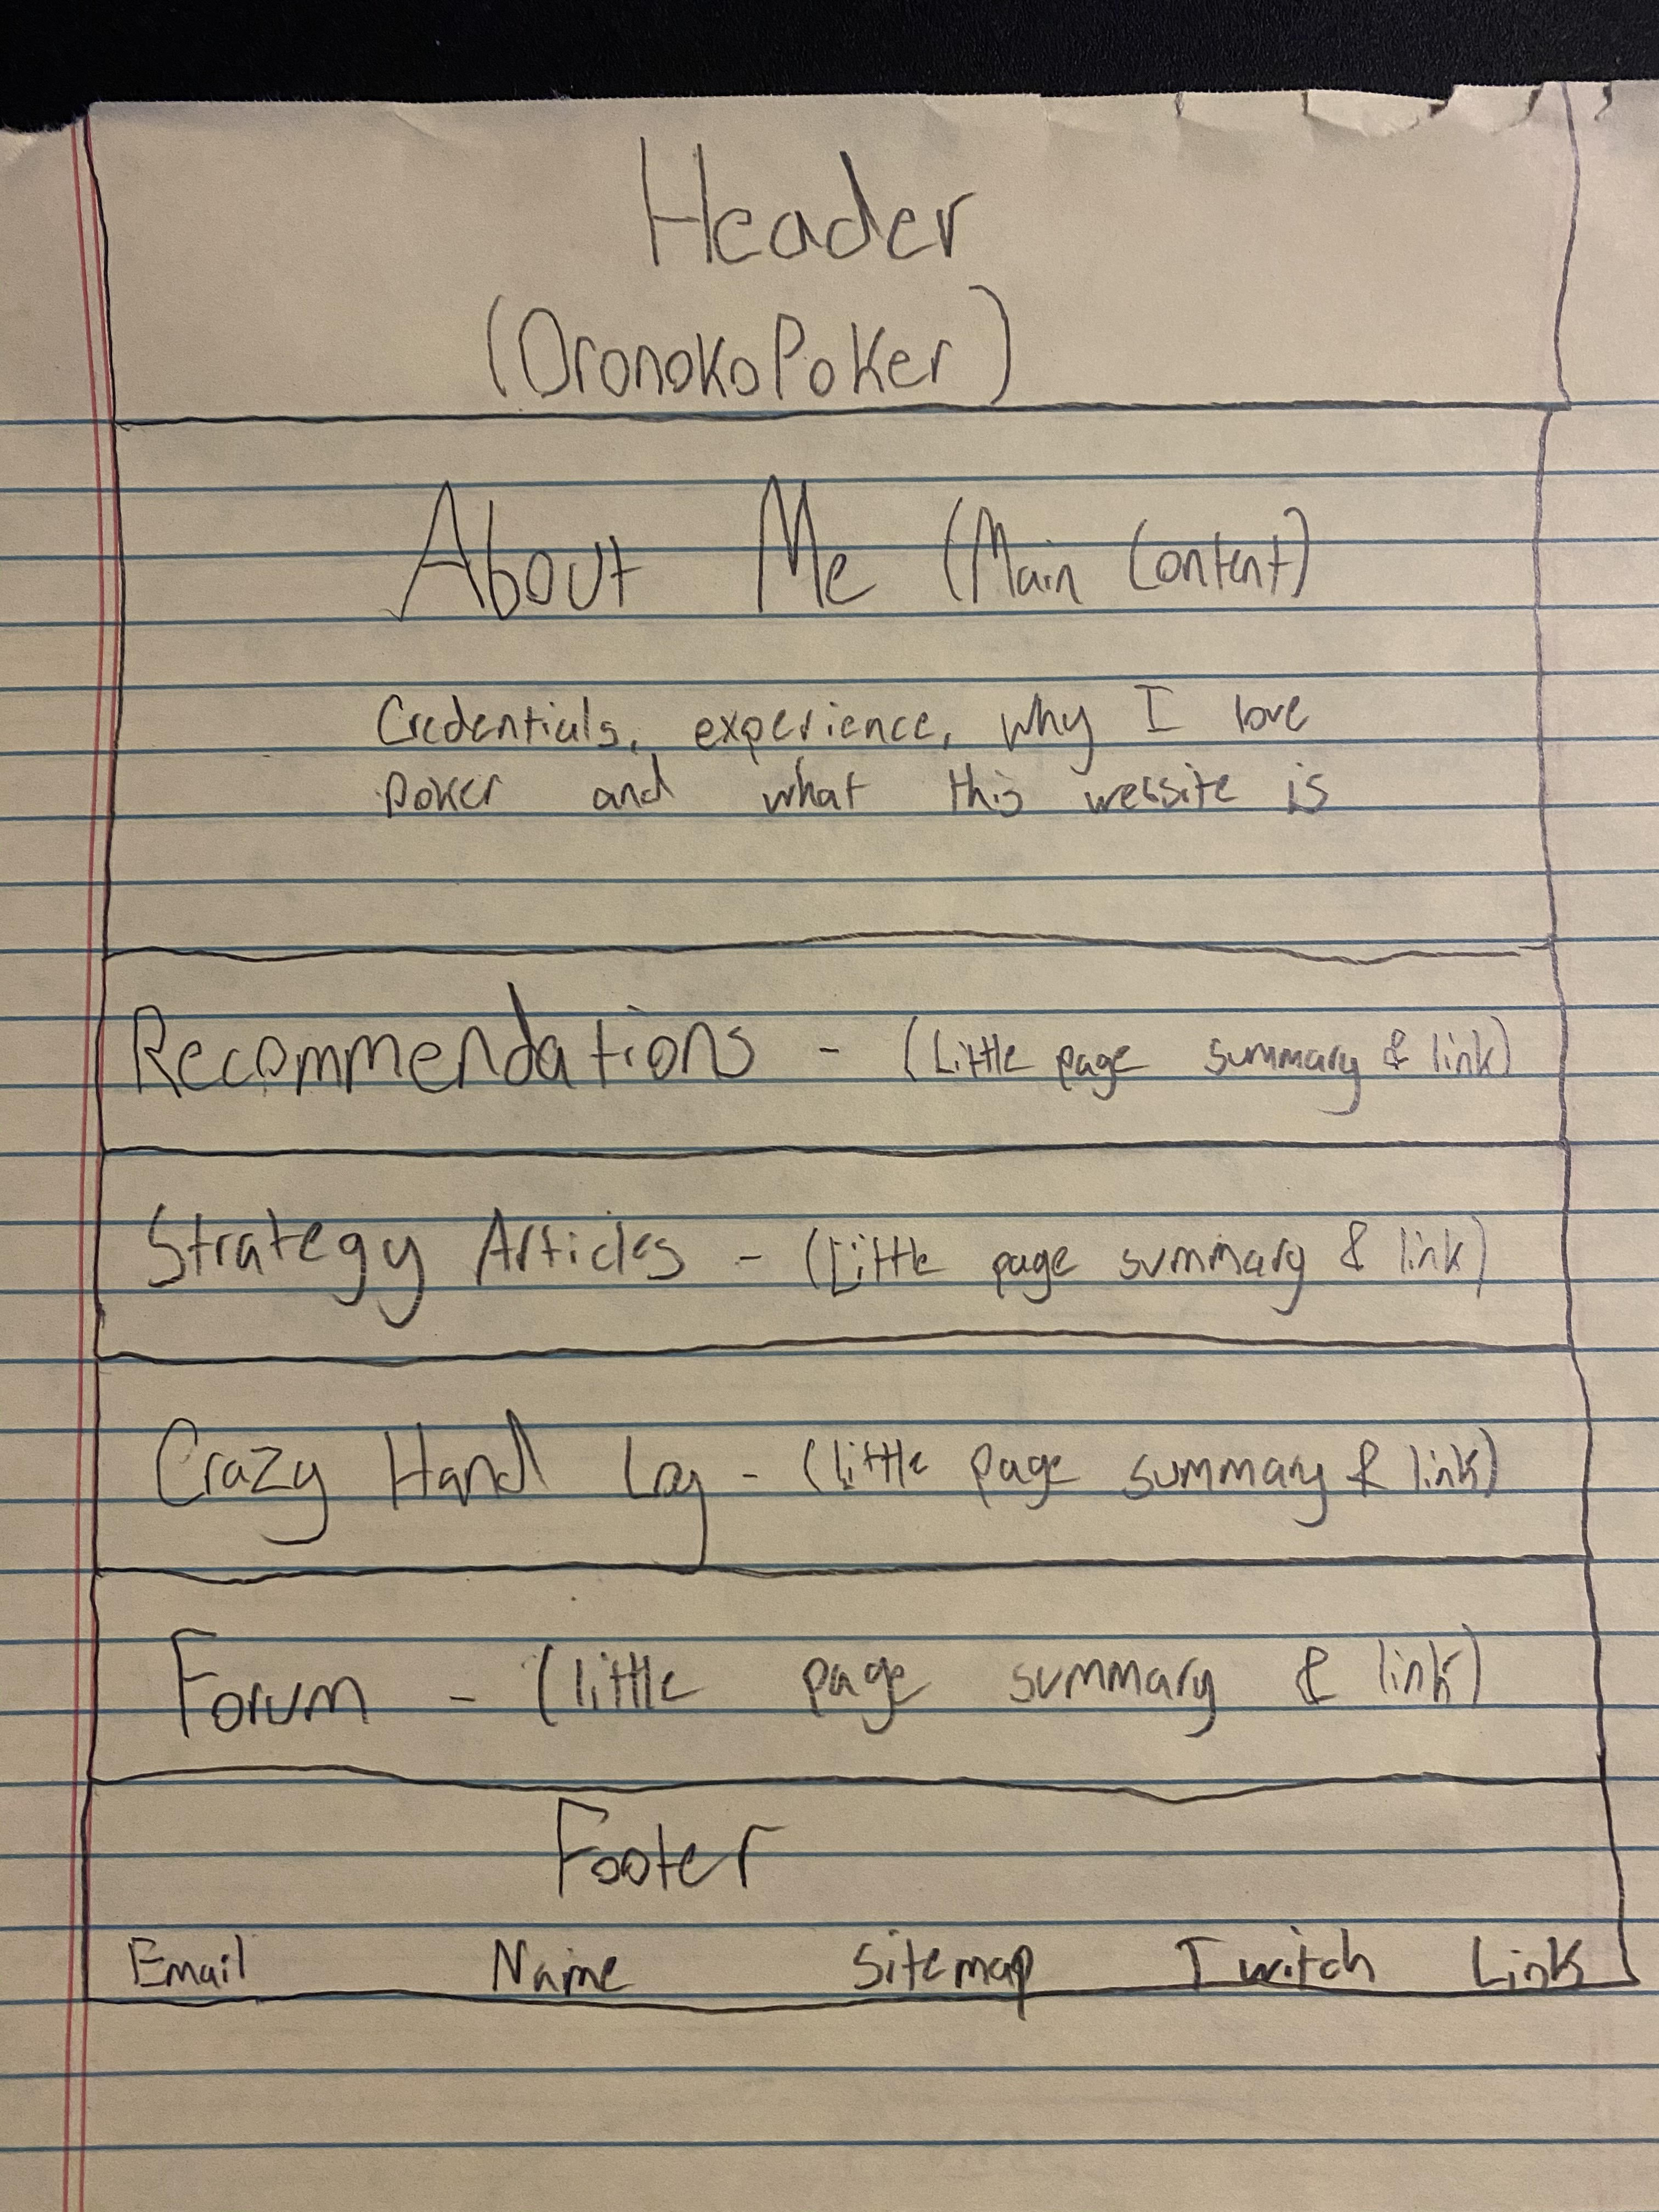 Header
(OronokoPoker)
About Me (Main Content)
Credentials, experience, why I love
poker and what this website is
Recommendations - (Little page summary & link)
Strategy Articles - (Little page summary & link)
Crazy Hand Log - (little page summary & link)
Forum - (little page summary & link)
Footer
Email Name Sitemap Twitch Link